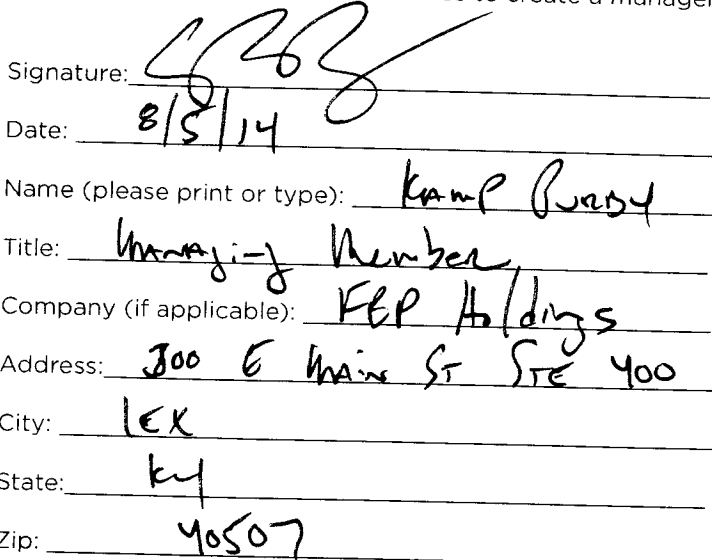 to create a manager
Signature:
Date: 8/5/14
Name (please print or type): Kamp Purdy
Title: Managing Member
Company (if applicable): Holdings
Address: 300 E Main St STE 400
City: LEX
State: Ky
Zip: 40507